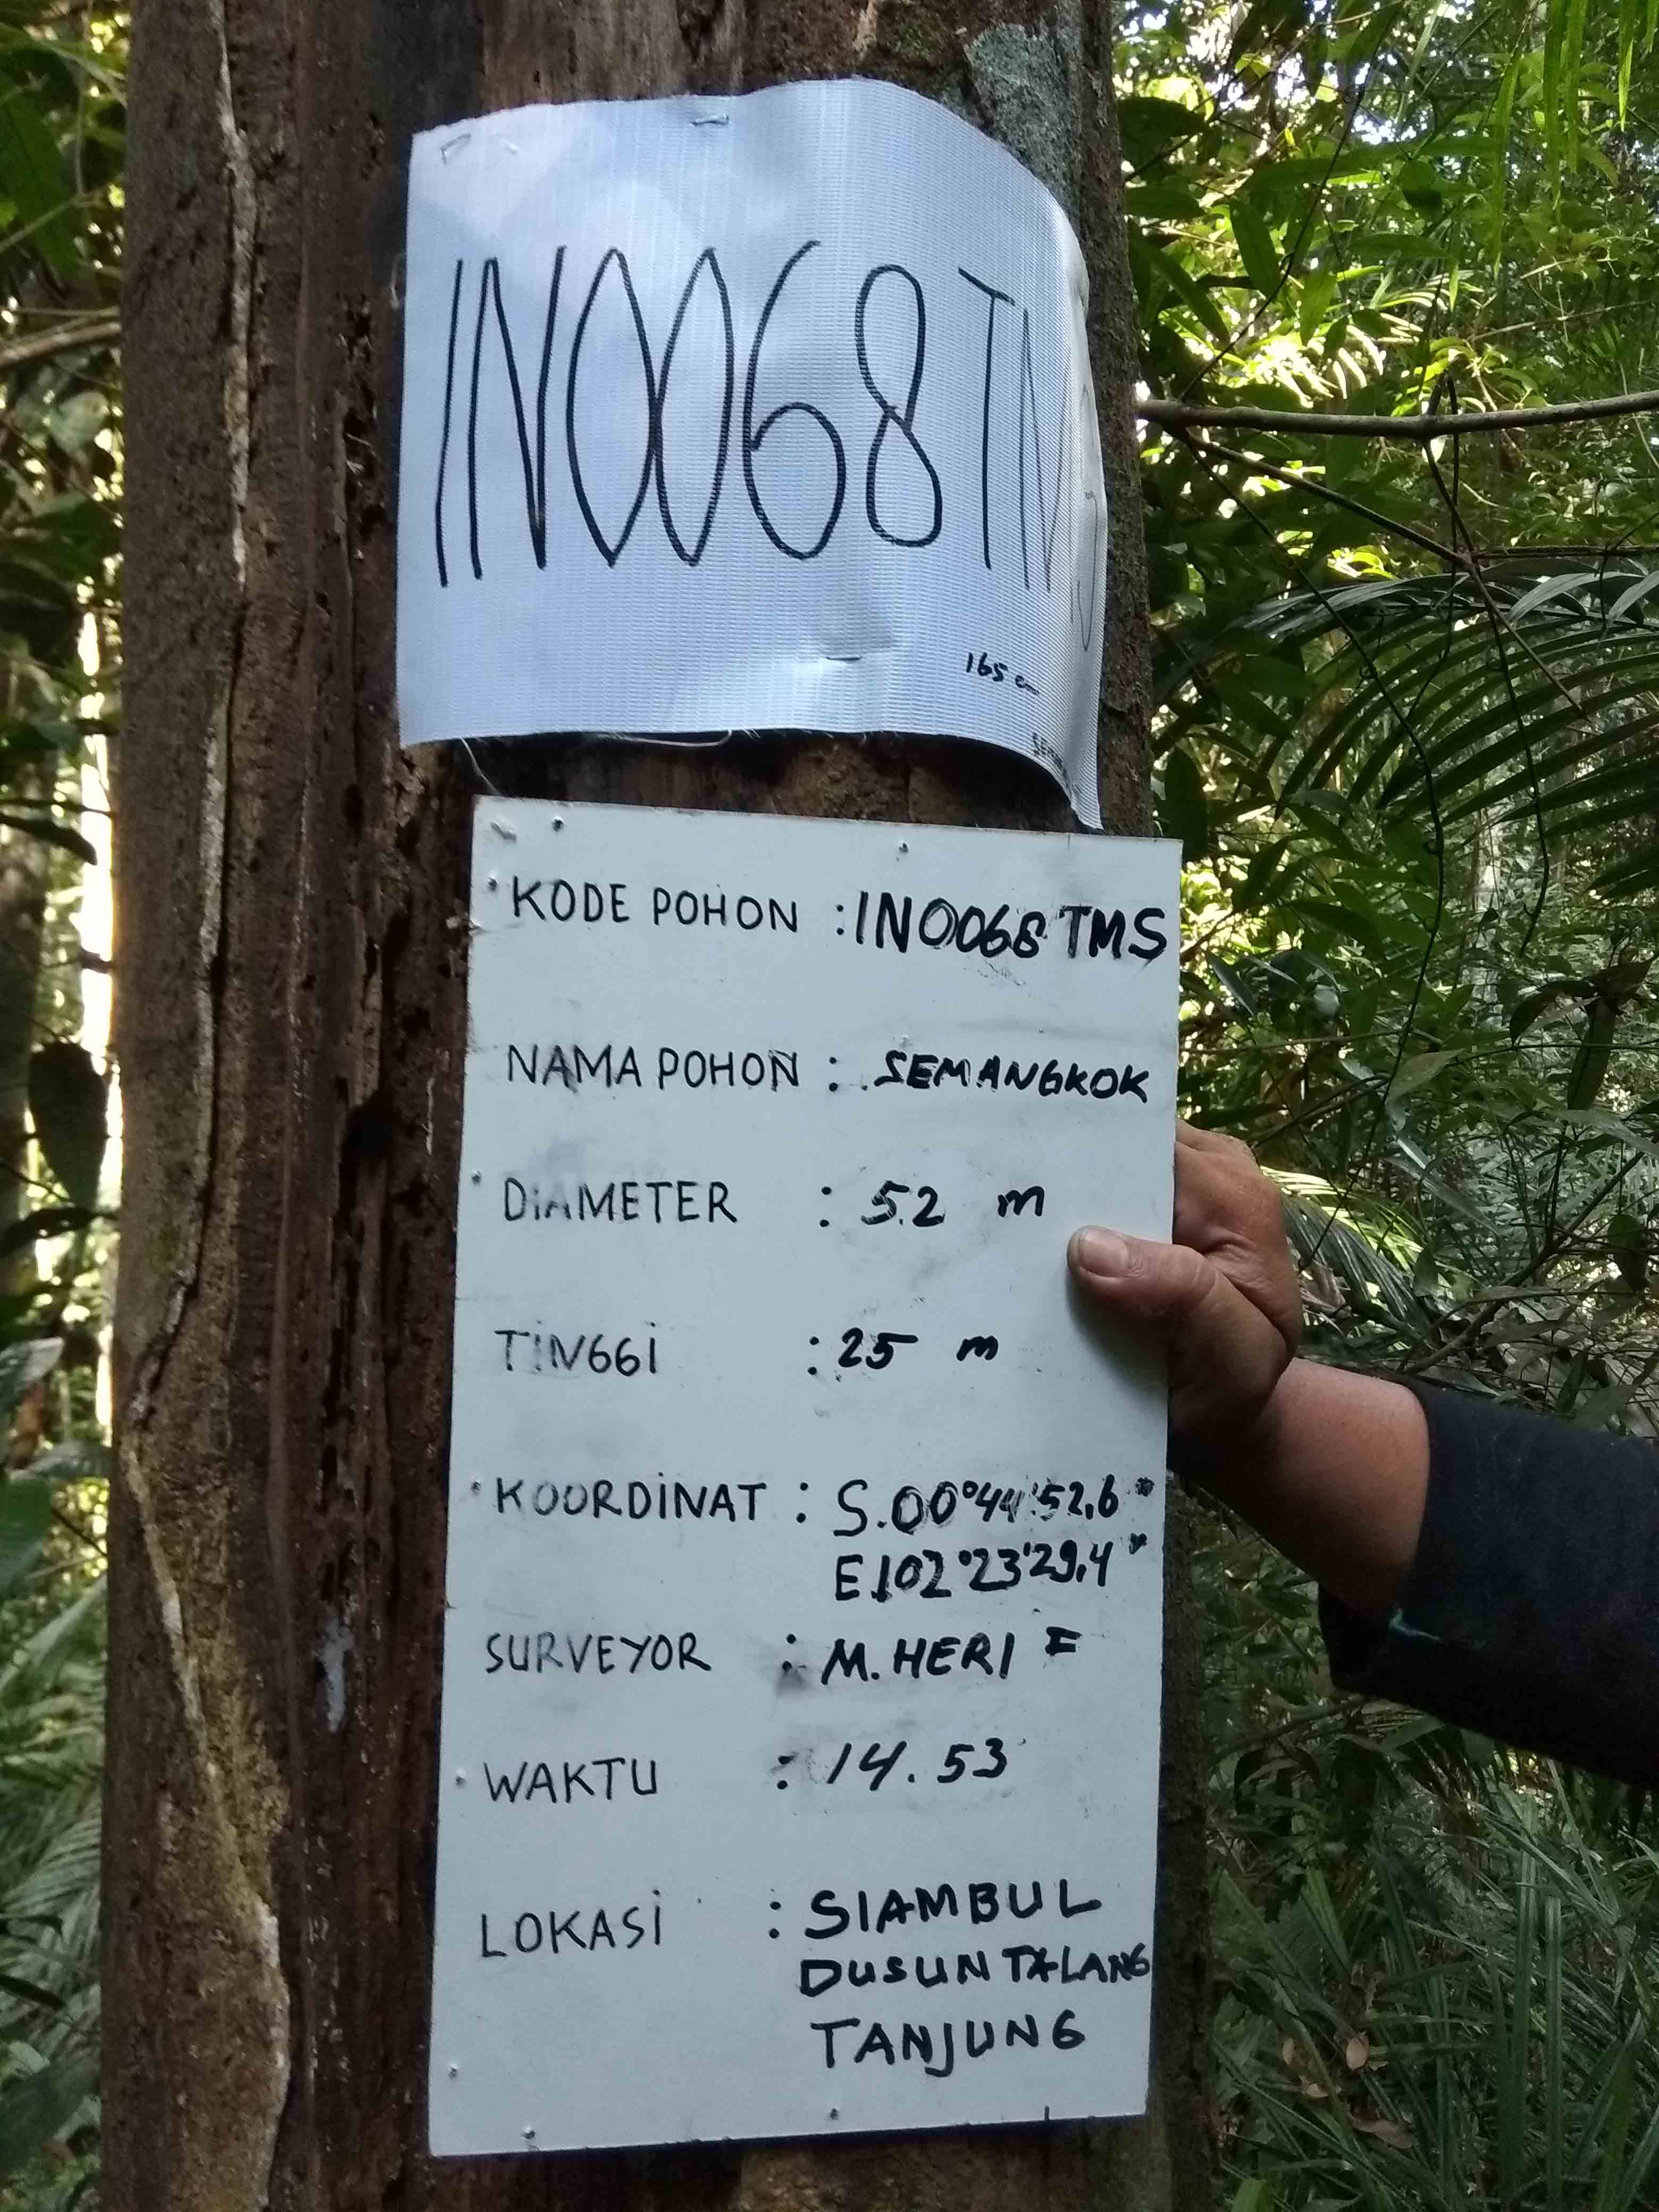 IN0068 TM
165 cm
KODE POHON : IN0068 TMS
NAMA POHON : SEMANGKOK
DiAMETER : 5.2 m
TiNGGi : 25 m
KOORDiNAT : S.00°44'52,6"
E.102°23'29,4"
SURVEYOR : M. HERI F
WAKTU : 14.53
LOKASi : SIAMBUL
DUSUN TALANG
TANJUNG